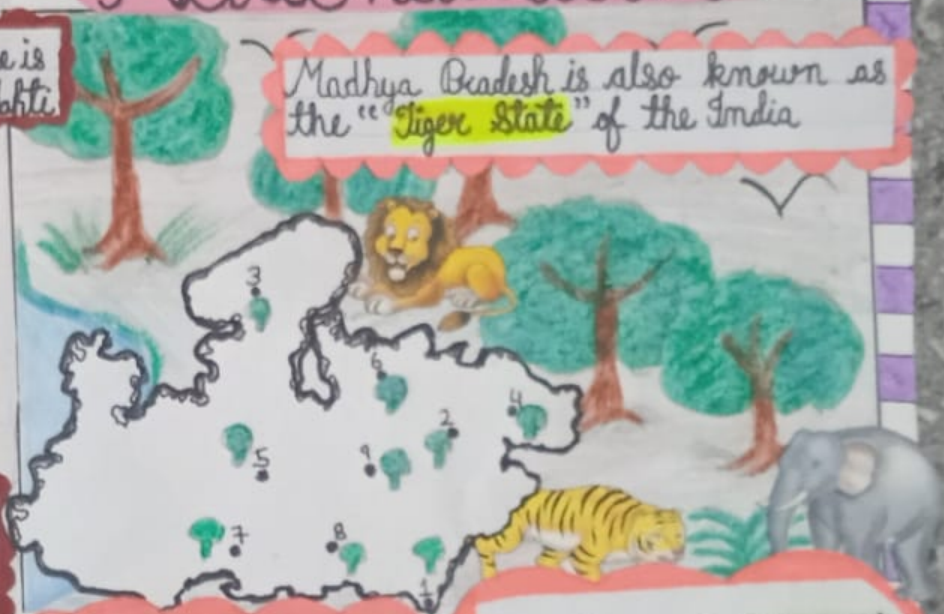 e is
ahti
Madhya Pradesh is also known as
the "Tiger State" of the India
3
6
4
2
9
5
7
8
1